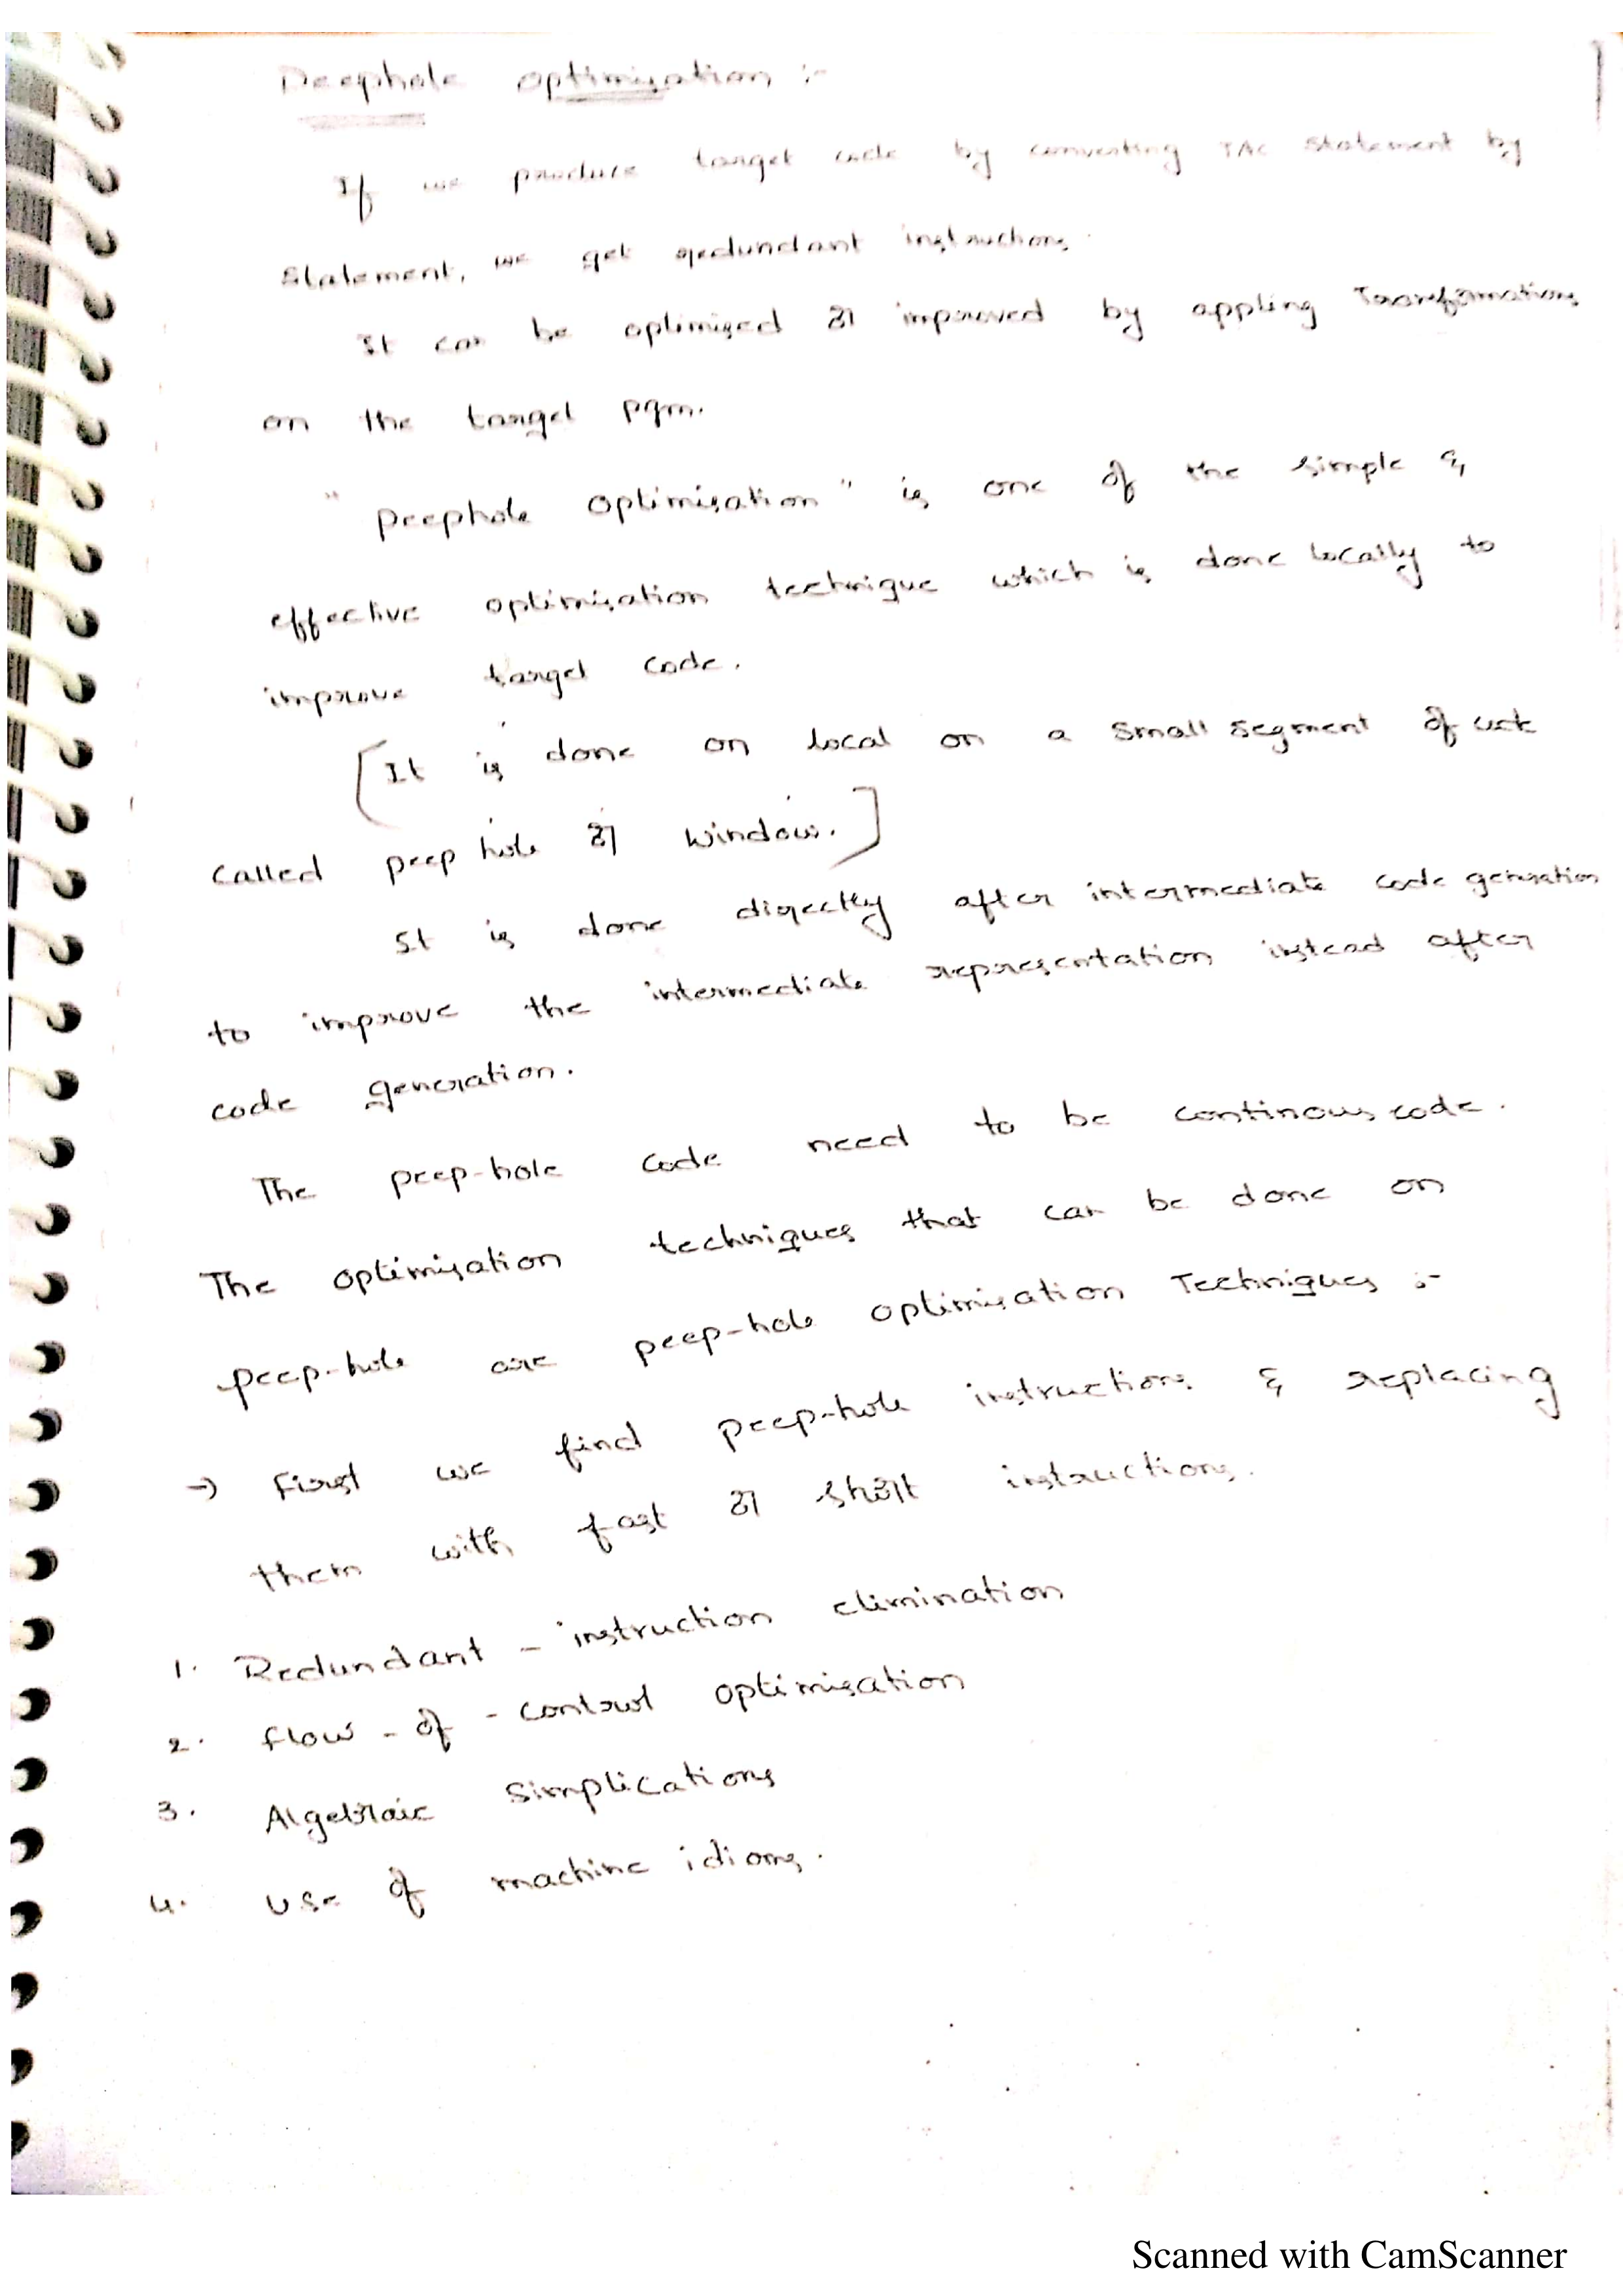 Peephole optimisation :-
If we produce target code by converting TAC statement by
statement, we get redundant instructions.
It can be optimised or improved by appling Transformations
on the target pgm.
" peephole optimisation " is one of the simple &
effective optimisation technique which is done locally to
improve target code.
[It is done on local on a small segment of code
called peep hole or window.]
It is done directly after intermediate code generation
to improve the intermediate representation instead after
code generation.
The peep-hole code need to be continous code.
The optimisation techniques that can be done on
peep-hole are peep-hole optimisation Techniques :-
→ First we find peep-hole instructions & replacing
them with fast or short instructions.
1. Redundant - instruction elimination
2. flow - of - control optimisation
3. Algebraic Simplications
4. Use of machine idioms.
Scanned with CamScanner